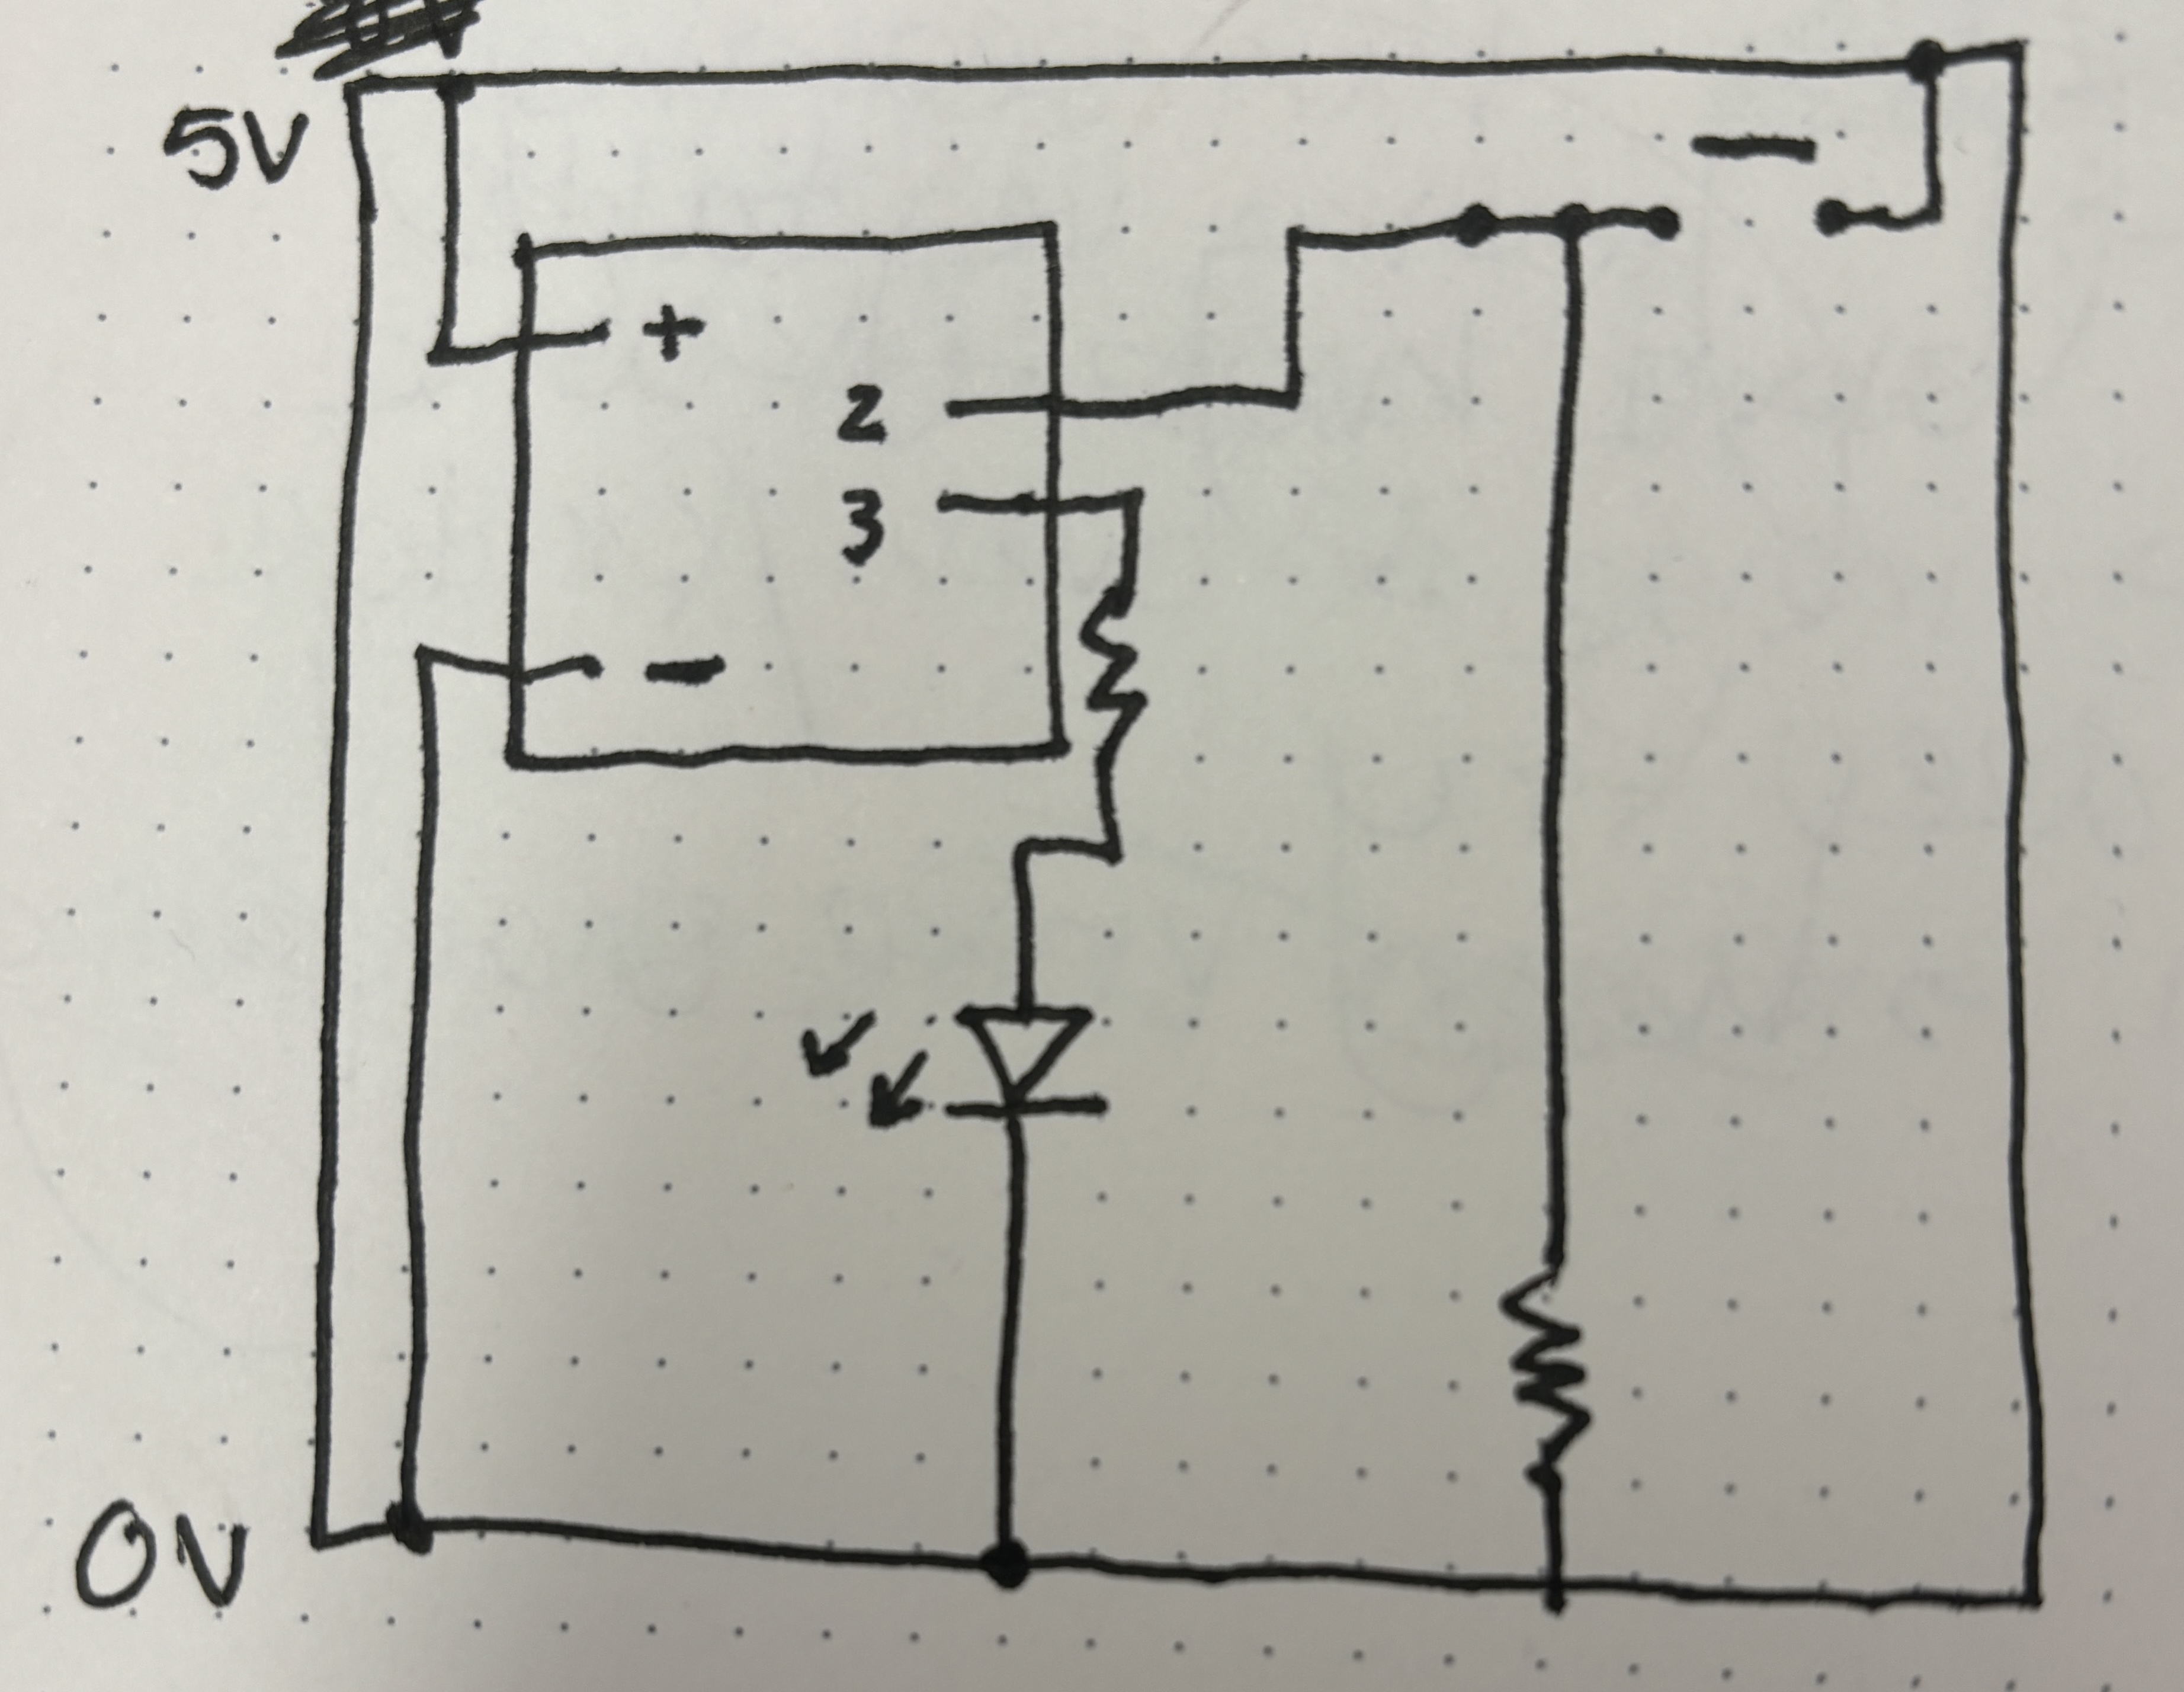 5V
+
2
3
-
0V